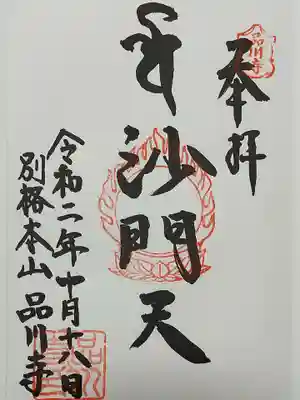 奉拝
品川寺
毘沙門天
令和二年十月十八日
別格本山 品川寺